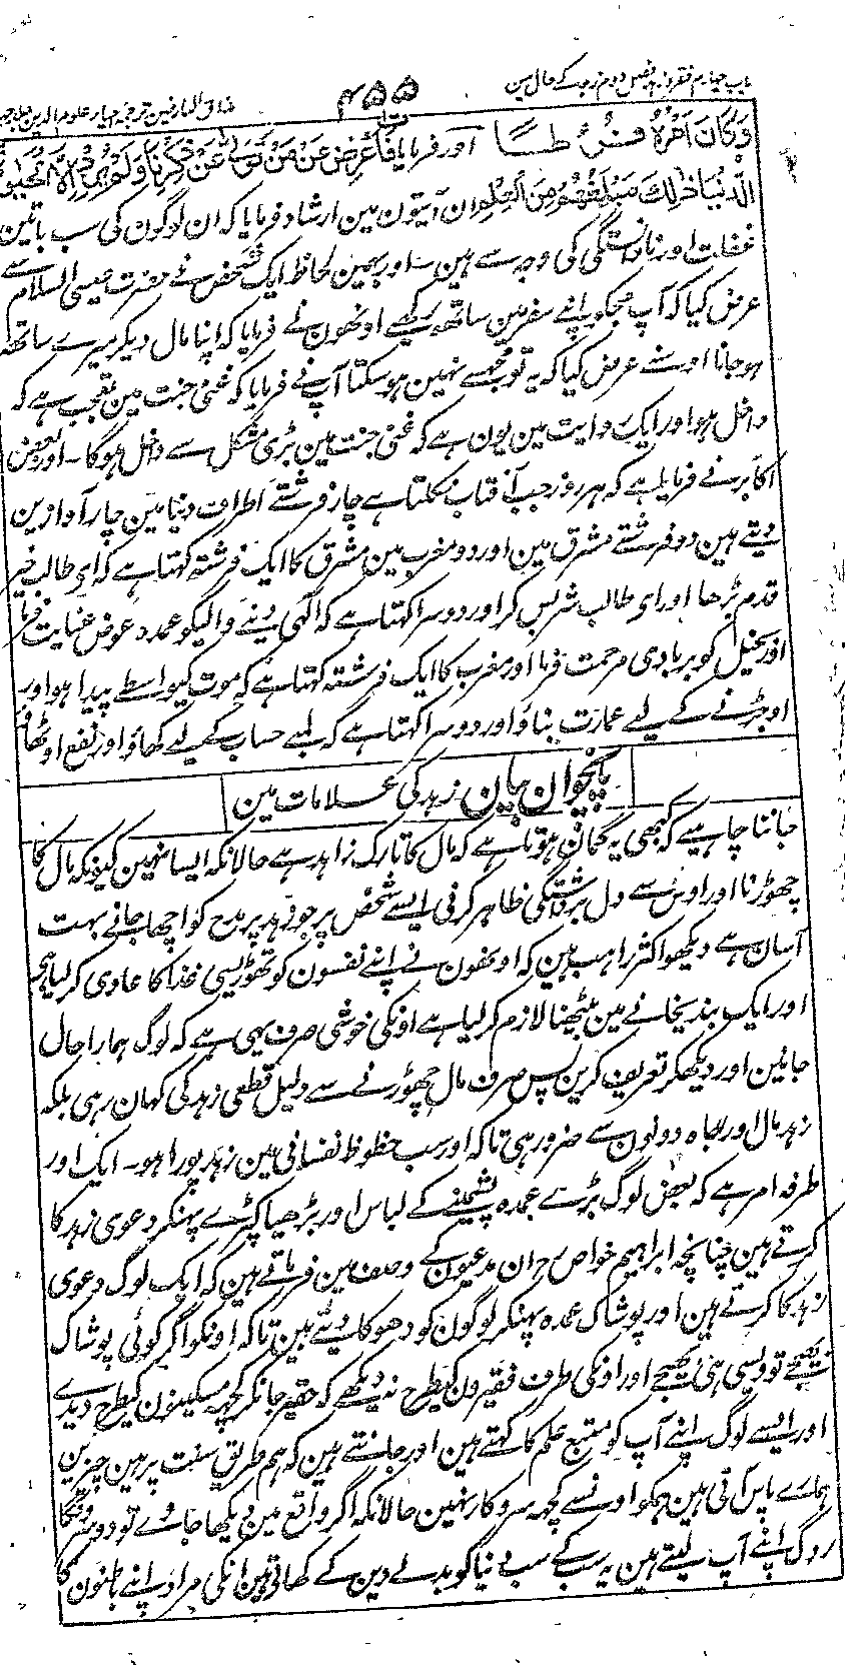 باب چہارم فقر و زہد فصل دوم زہد کے حال مین
۴۵۵
مذاق العارفین ترجمہ احیاء علوم الدین جلد چہارم
وَكَانَ اَمْرُهٗ فُرُطًا اور فرمایا فَاَعْرِضْ عَنْ مَنْ تَوَلّٰى عَنْ ذِكْرِنَا وَلَمْ يُرِدْ اِلَّا الْحَيٰوةَ
الدُّنْيَا ذٰلِكَ مَبْلَغُهُمْ مِنَ الْعِلْمِ ان آیتون مین ارشاد فرمایا کہ ان لوگون کی سب باتین
غفلت اور نادانستگی کی وجہ سے ہین ۔ اور بہمین لحاظ ایک شخص نے حضرت عیسی السلام سے
عرض کیا کہ آپ مجکو اپنے سفر مین ساتھ رکھیے اونھون نے فرمایا کہ اپنا مال دیکر میرے ساتھ
ہو جانا اوسنے عرض کیا کہ یہ تو مجھسے نہین ہو سکتا آپ نے فرمایا کہ غنی جنت مین تعجب ہے کہ
داخل ہو اور ایک روایت مین یون ہے کہ غنی جنت مین بڑی مشکل سے داخل ہوگا ۔ اور بعض
اکابر نے فرمایا ہے کہ ہر روز جب آفتاب نکلتا ہے چار فرشتے اطراف دنیا مین چار آوازین
دیتے ہین دو فرشتے مشرق مین اور دو مغرب مین مشرق کا ایک فرشتہ کہتا ہے کہ ای طالب خیر
قدم بڑھا اور ای طالب شر بس کر اور دوسرا کہتا ہے کہ الٰہی دینے والیکو عمدہ عوض عنایت فرما
اور بخیل کو بربادی مرحمت فرما اور مغرب کا ایک فرشتہ کہتا ہے کہ موت کیواسطے پیدا ہو اور
اوجڑنے کے لیے عمارت بناؤ اور دوسرا کہتا ہے کہ لمبے حساب کے لیے کھاؤ اور نفع اوٹھاؤ
پانچوان بیان زہد کی علامات مین
جاننا چاہیے کہ کبھی یہ گمان ہوتا ہے کہ مال کا تارک زاہد ہے حالانکہ ایسا نہین کیونکہ مال کا
چھوڑنا اور اوس سے دل برداشتگی ظاہر کرنی ایسے شخص پر جو زہد پر مدح کو اچھا جانے بہت
آسان ہے دیکھو اکثر راہب ہین کہ اونھون نے اپنے نفسون کو تھوڑیسی غذا کا عادی کر لیا ہی
اور ایک بندیخانے مین بیٹھنا لازم کر لیا ہے اونکی خوشی صرف یہی ہے کہ لوگ ہمارا حال
جانین اور دیکھکر تعریف کرین پس صرف مال چھوڑنے سے دلیل قطعی زہد کی کہان رہی بلکہ
زہد مال اور جاہ دونون سے ضرور ہی تاکہ اور سب حظوظ نفسانی مین زہد پورا ہو ۔ ایک اور
طرفہ امر ہے کہ بعض لوگ بڑے عمدہ پشمینے کے لباس اور بڑھیا کپڑے پہنکر دعوی زہد کا
کرتے ہین چنانچہ ابراہیم خواص رح ان مدعیون کے وصف مین فرماتے ہین کہ ایک لوگ دعوی
زہد کا کرتے ہین اور پوشاک عمدہ پہنکر لوگون کو دھوکا دیتے ہین تاکہ اونکو اگر کوئی پوشاک
بھیجے تو ویسی ہی بھیجے اور اونکی طرف فقیرون کیطرح نہ دیکھے کہ حقیر جانکر کچھ مسکینون کیطرح دیدے
اور ایسے لوگ اپنے آپ کو متبع علم کا کہتے ہین اور جانتے ہین کہ ہم طریق سنت پر ہین چیزین
ہمارے پاس آتی ہین ہمکو اونسے کچھ سروکار نہین حالانکہ اگر واقع مین دیکھا جاوے تو دوسرونکا
روگ اپنے آپ لیتے ہین یہ سب کے سب دنیا کو بدلے دین کے کھاتے ہین انکی مراد اپنے باطنون کا